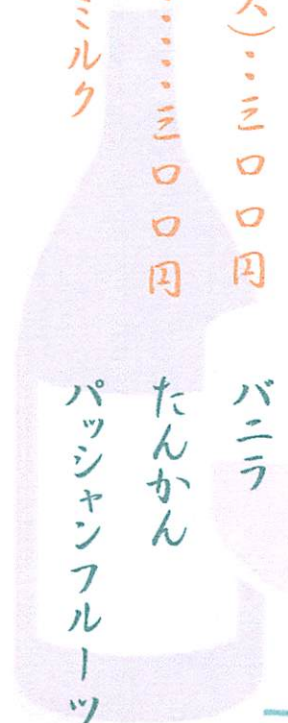 ス)‥三〇〇円
バニラ
‥‥三〇〇円
たんかん
ミルク
パッシャンフルーツ